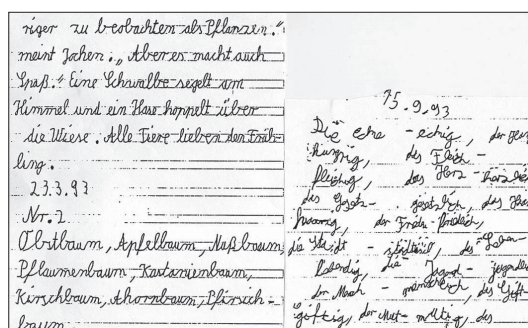 riger zu beobachten als Pflanzen."
meint Jochen. „Aber es macht auch
Spaß." Eine Schwalbe segelt am
Himmel und ein Hase hoppelt über
die Wiese. Alle Tiere lieben den Früh-
ling.
23.3.93
Nr. 2
Obstbaum, Apfelbaum, Nußbaum
Pflaumenbaum, Kastanienbaum,
Kirschbaum, Ahornbaum, Pfirsich-
baum
15.9.93
Die - eckig, der
hungrig, das Fleisch -
fleischig, das Herz - herzlich
das Gesetz - gesetzlich, das
der Friede - friedlich,
die Stadt - das Leben -
lebendig, die Jugend -
der Mensch - das Gift
giftig, der Mut - mutig, des